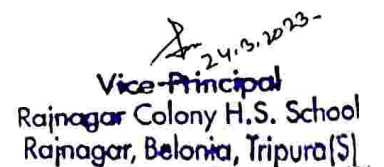 24.3.2023-
Vice-Principal
Rajnagar Colony H.S. School
Rajnagar, Belonia, Tripura(S)